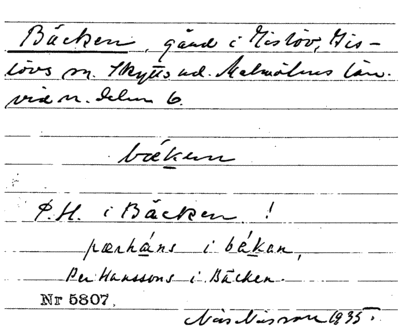 Bäcken, gård i Gislöv, Gis-
lövs sn. Skytts hd. Malmöhus län.
vid n. delen 6.
bækæn
P.H. i Bäcken!
pærháns i bǽkan,
Per Hanssons i Bäcken.
Nr 5807.
Nils Nilsson 1935.